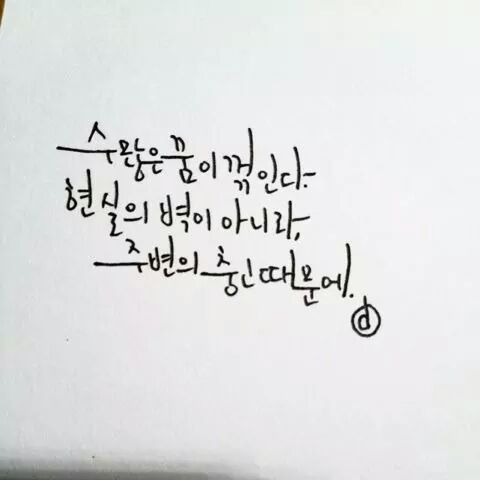 수많은 꿈이 꺾인다.
현실의 벽이 아니라,
주변의 충고 때문에.
ⓓ